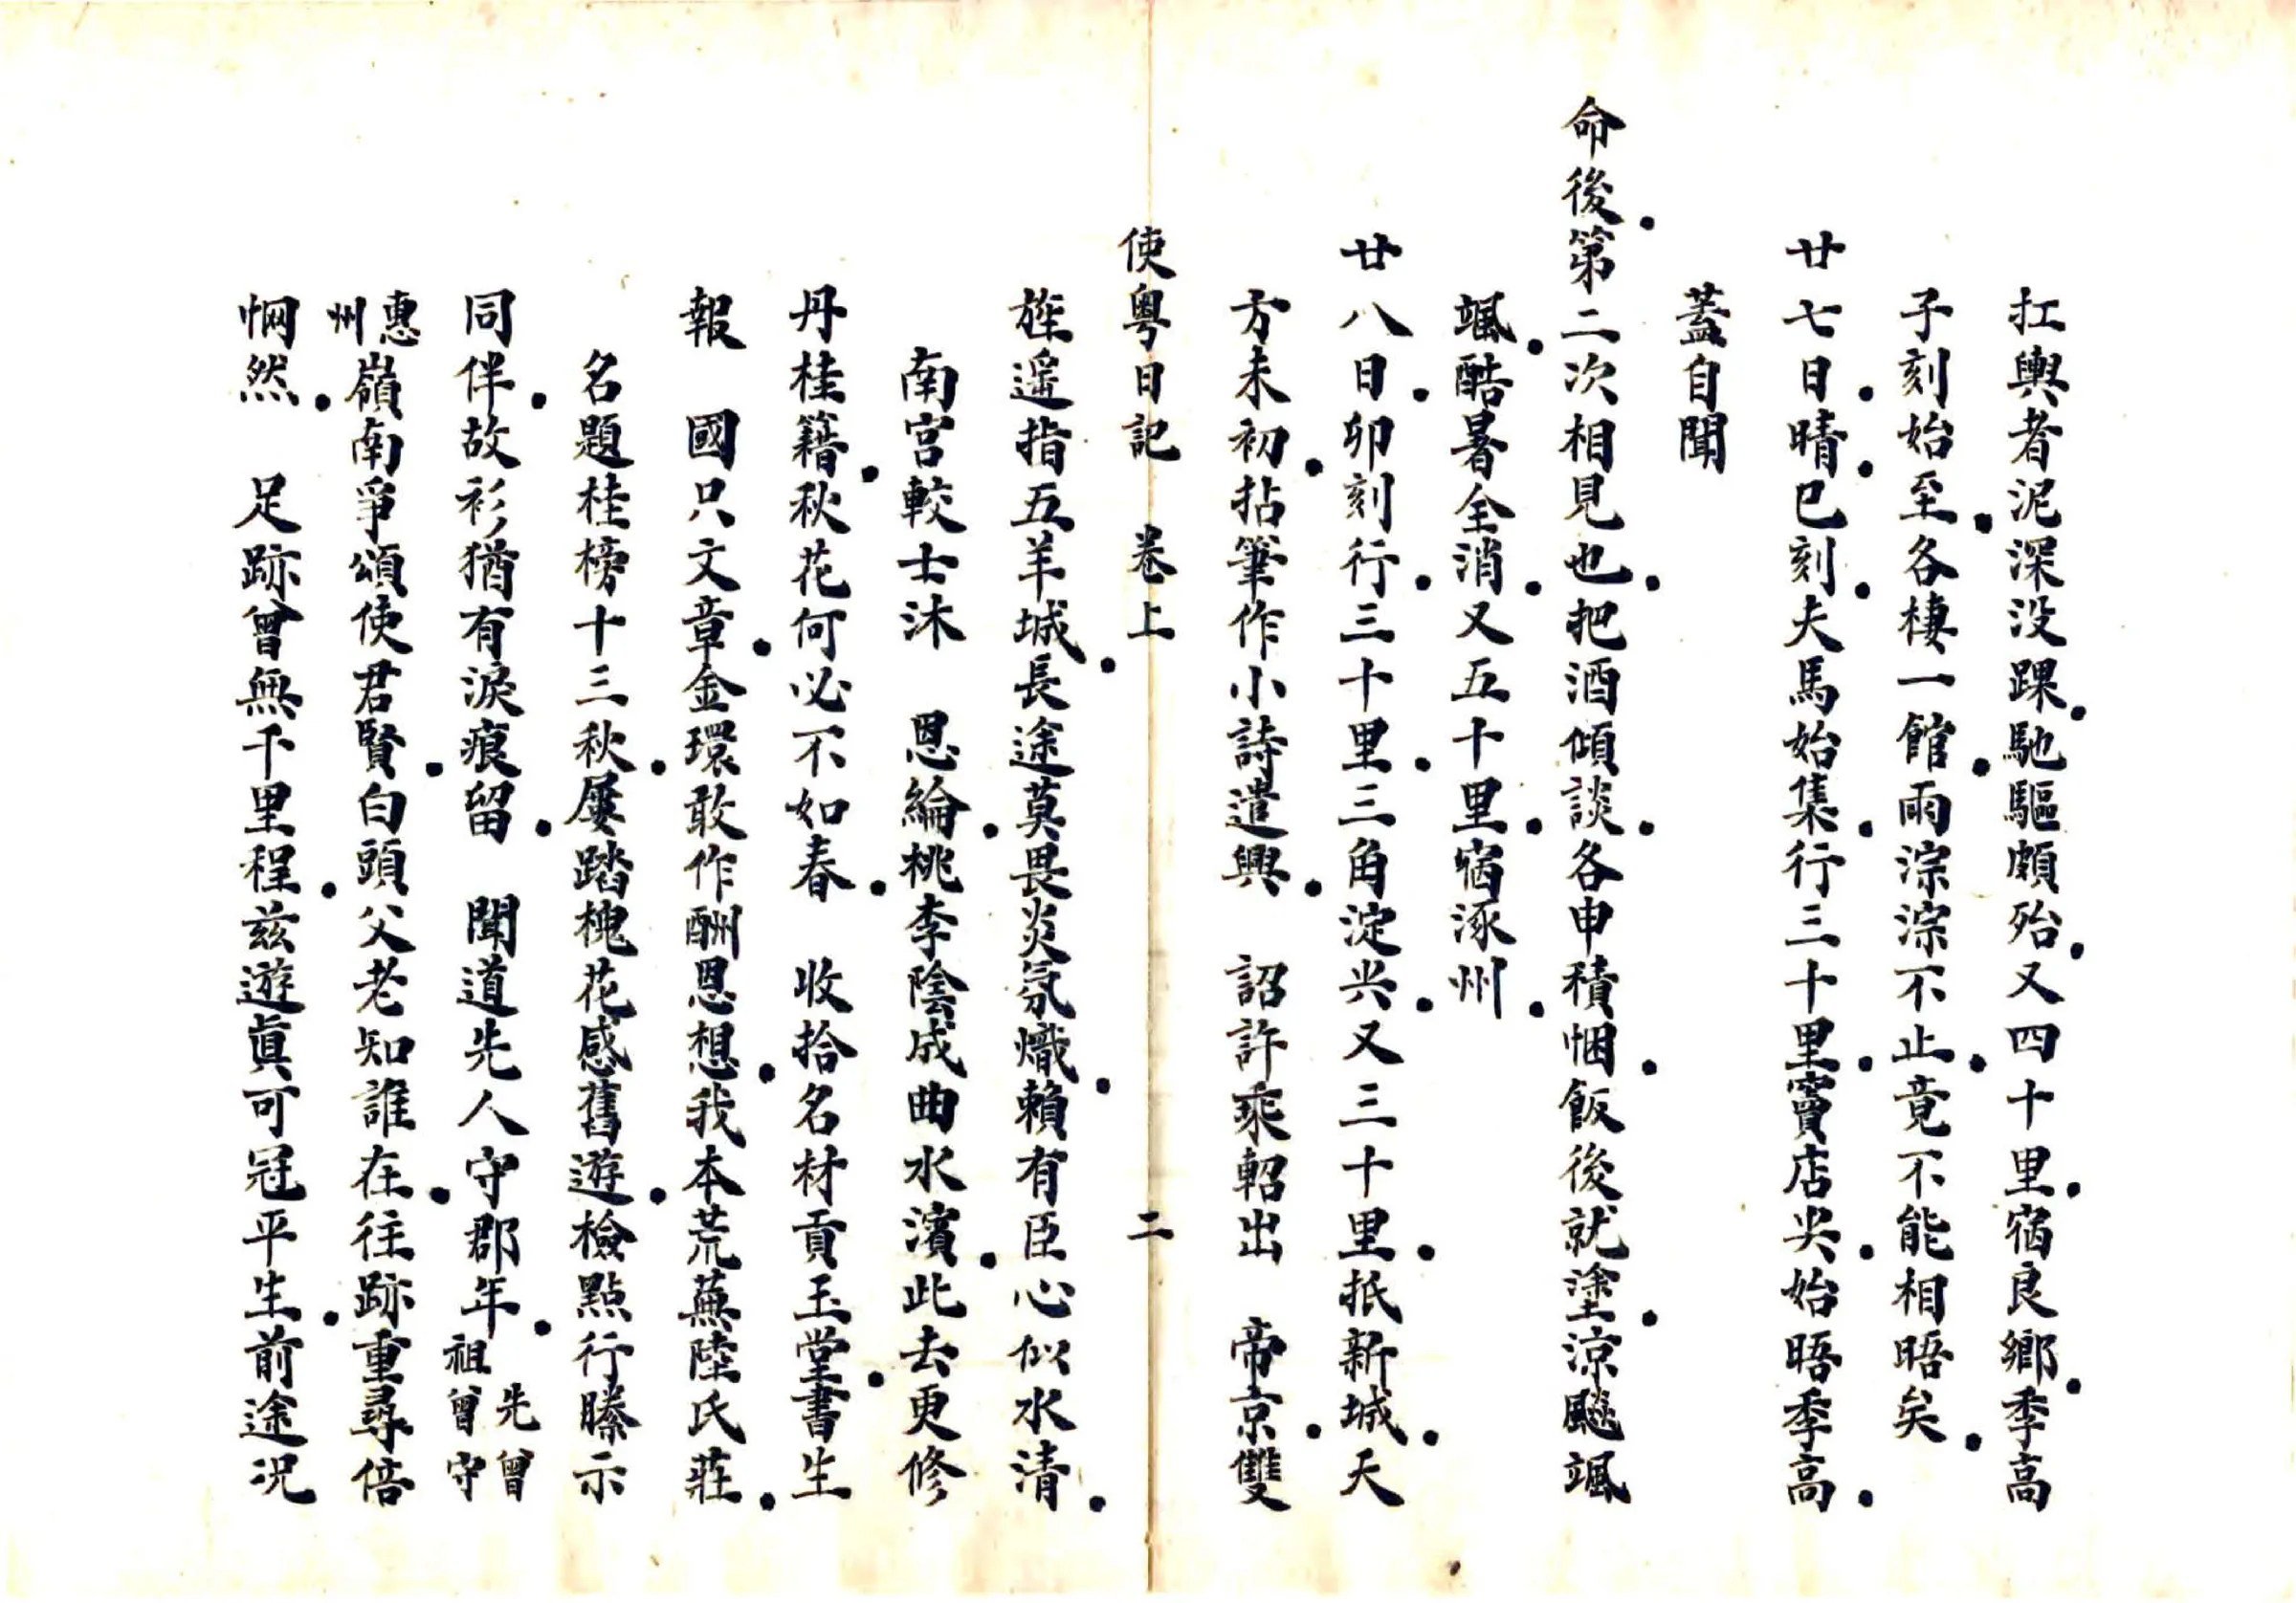 扛輿者泥深没踝馳驅頗殆又四十里宿良鄉季高
子刻始至各棲一館雨淙淙不止竟不能相晤矣
廿七日晴巳刻夫馬始集行三十里竇店尖始晤季高
蓋自聞
命後第二次相見也把酒傾談各申積悃飯後就塗涼飈颯
颯酷暑全消又五十里宿涿州
廿八日卯刻行三十里三角淀尖又三十里抵新城天
方未初拈筆作小詩遣興　詔許乘軺出　帝京雙
使粵日記　卷上　二
旌遥指五羊城長途莫畏炎氛熾賴有臣心似水清
南宮較士沐　恩綸桃李陰成曲水濱此去更修
丹桂籍秋花何必不如春　收拾名材貢玉堂書生
報　國只文章金環敢作酬恩想我本荒蕪陸氏莊
名題桂榜十三秋屢踏槐花感舊遊檢點行縢示
同伴故衫猶有淚痕留　聞道先人守郡年先曾祖曾守
惠州嶺南爭頌使君賢白頭父老知誰在往跡重尋倍
惘然　足跡曾無千里程兹遊眞可冠平生前途况